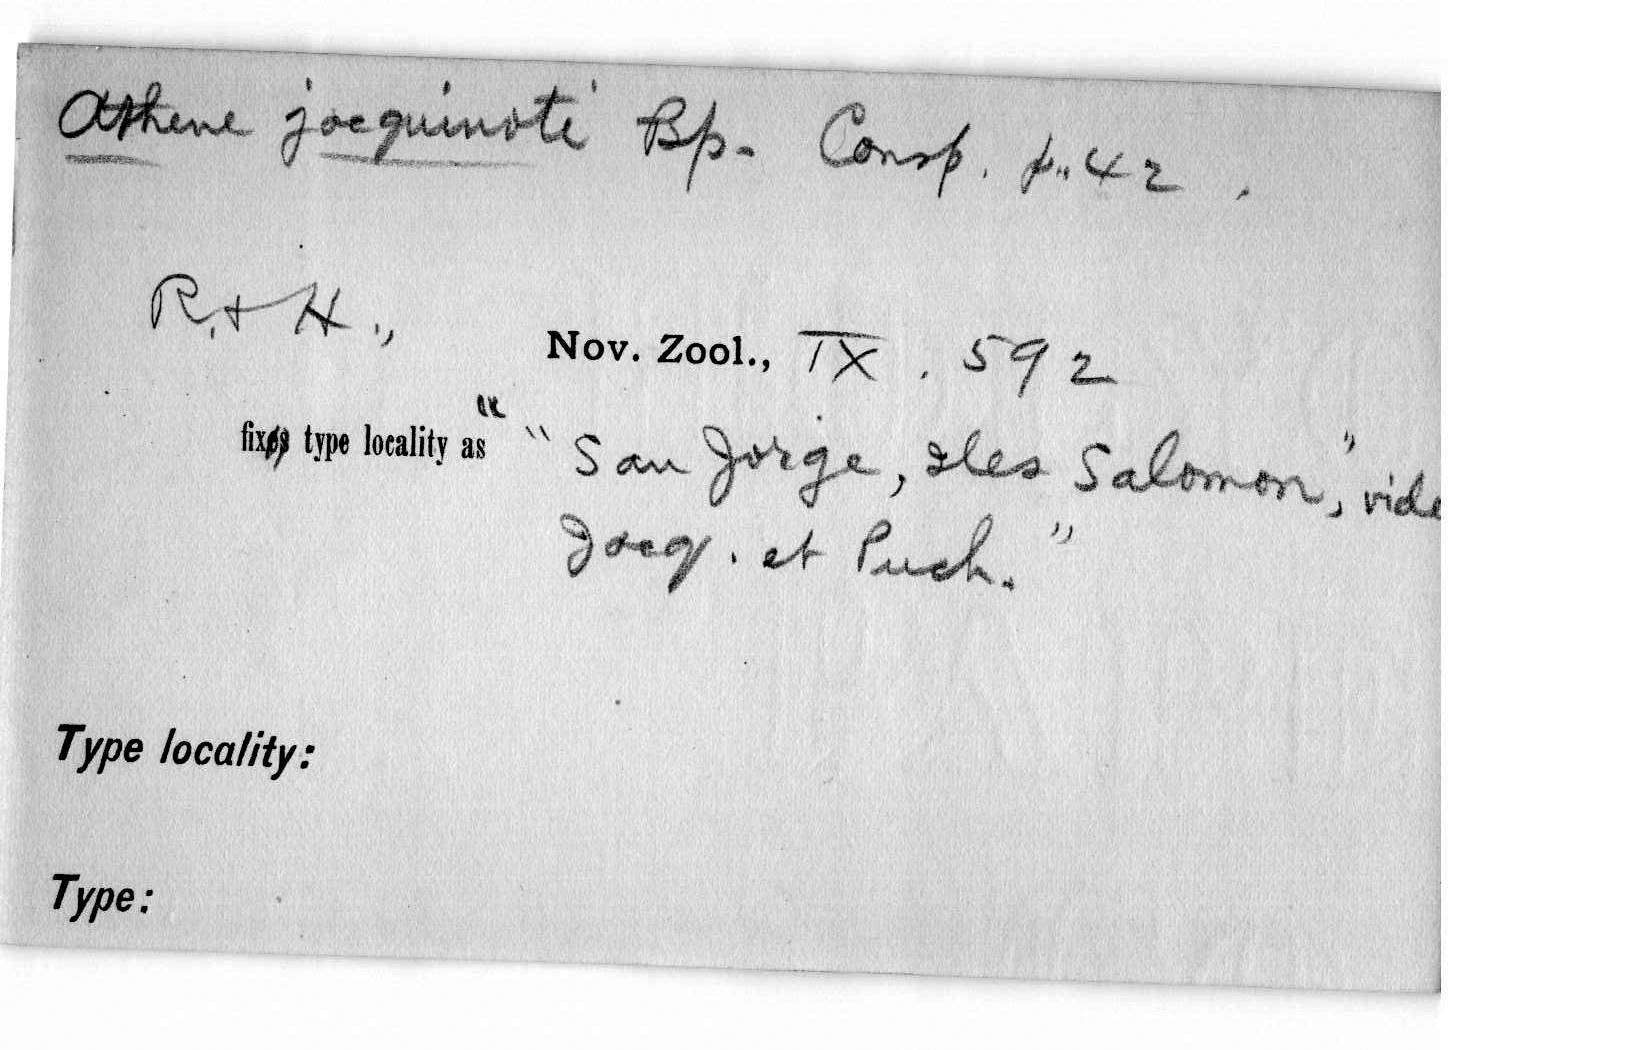 Athene jacquinoti Bp. Consp. p. 42.
R. & H.,
Nov. Zool., IX. 592
fixes type locality as "San Jorge, Iles Salomon", vide
Jacq. et Puch."
Type locality:
Type: